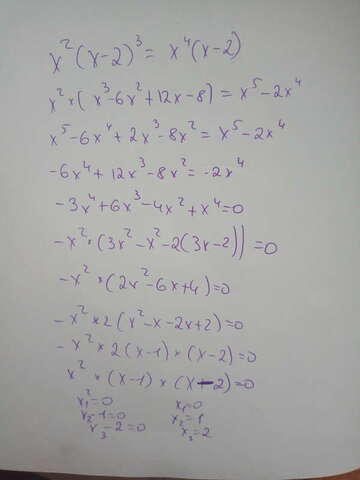 x²(x-2)³ = x⁴(x-2)
x²×(x³-6x²+12x-8) = x⁵-2x⁴
x⁵-6x⁴+2x³-8x² = x⁵-2x⁴
-6x⁴+12x³-8x² = -2x⁴
-3x⁴+6x³-4x²+x⁴=0
-x²×(3x²-x²-2(3x-2))=0
-x²×(2x²-6x+4)=0
-x²×2(x²-x-2x+2)=0
-x²×2(x-1)×(x-2)=0
x²×(x-1)×(x-2)=0
x₁²=0 x₁=0
x₂-1=0 x₂=1
x₃-2=0 x₃=2